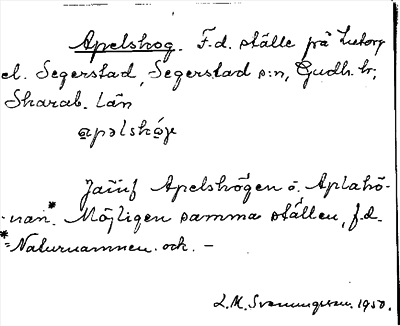 Apelskog. F.d. ställe på Lutorp
el. Segerstad, Segerstad s:n, Gudh. hr;
Skarab. län
apəlskóg
Jämf Apelshögen o. Aplahö-
nan.* Möjligen samma ställen, f.d.
*= Naturnamnen. och. –
L. M. Svanungsson. 1950.